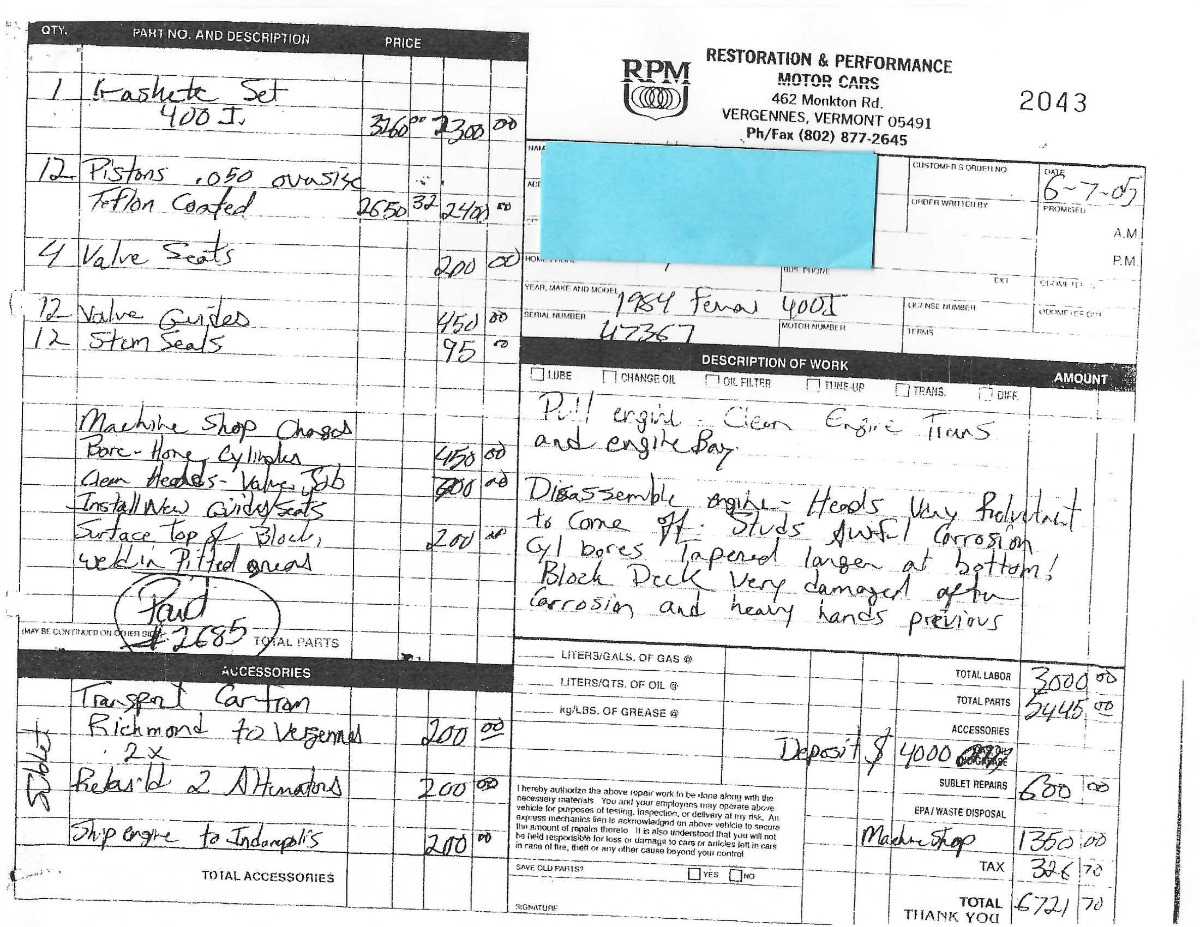 QTY. PART NO. AND DESCRIPTION PRICE
1 Gaskete Set
400 I. 3260 00 2300 00
12 Pistons .050 ovasize
Teflon Coated 2650 32 2400 00
4 Valve Seats 200 00
12 Valve Guides 450 00
12 Stem Seals 95 00
Machine Shop Charges
Bore-Hone Cylinder 450 00
Clean Heads-Valve Job 00
Install New Guides/seats
Surface Top of Block, 200 00
weld in Pitted areas
Paid
# 2685
(MAY BE CONTINUED ON OTHER SIDE) TOTAL PARTS
ACCESSORIES
Sublet
Transport Car from
Richmond to Vergennes 200 00
2x
Rebuild 2 Alternators 200 00
Ship engine to Indianapolis 200 00
TOTAL ACCESSORIES
RPM
RESTORATION & PERFORMANCE
MOTOR CARS
462 Monkton Rd.
VERGENNES, VERMONT 05491
Ph/Fax (802) 877-2645
2043
NAME
CUSTOMER'S ORDER NO.
DATE
6-7-05
ORDER WRITTEN BY
PROMISED
A.M.
P.M.
BUS. PHONE
EXT
YEAR, MAKE AND MODEL
1984 Ferrari 400I
LICENSE NUMBER
ODOMETER OUT
SERIAL NUMBER
47367
MOTOR NUMBER
TERMS
DESCRIPTION OF WORK AMOUNT
LUBE CHANGE OIL OIL FILTER TUNE-UP TRANS. DIFF.
Pull engine - Clean Engine Trans
and engine Bay.
Disassemble engine - Heads Very Reluctant
to Come off. Studs Awful Corrosion
Cyl bores Tapered larger at bottom!
Block Deck Very damaged after
Corrosion and heavy hands previous
LITERS/GALS. OF GAS @
LITERS/QTS. OF OIL @
kg/LBS. OF GREASE @
TOTAL LABOR 3000 00
TOTAL PARTS 5445 00
ACCESSORIES
Deposit $ 4000
SUBLET REPAIRS 600 00
EPA / WASTE DISPOSAL
Machine Shop 1350 00
TAX 326 70
TOTAL 6721 70
THANK YOU
I hereby authorize the above repair work to be done along with the
necessary materials. You and your employees may operate above
vehicle for purposes of testing, inspection, or delivery at my risk. An
express mechanics lien is acknowledged on above vehicle to secure
the amount of repairs thereto. It is also understood that you will not
be held responsible for loss or damage to cars or articles left in cars
in case of fire, theft or any other cause beyond your control.
SAVE OLD PARTS? YES NO
SIGNATURE